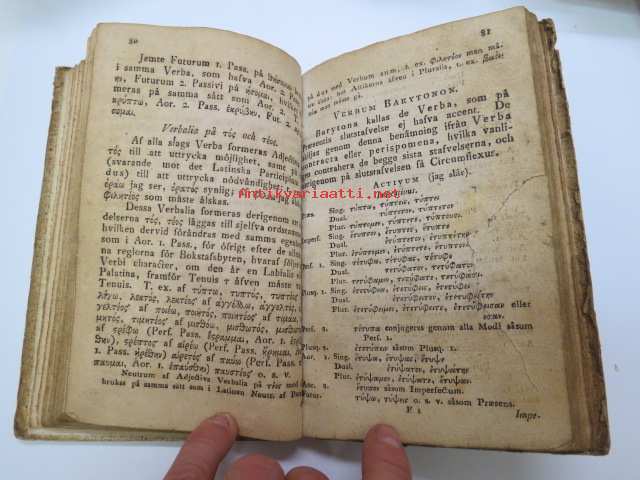 80
Jemte Futurum 1. Pass. på
i samma Verba, som hafva Aor. 2.
Futurum 2. Passivi på ήσομαι, hvilket
meras på samma sätt som Aor. 2.
κρύπτω, Aor. 2. Pass. ἐκρύβην, Fut. 2.
σομαι.
Verbalia på τός och τέος.
Af alla slags Verba formeras Adjectiva
τός till att uttrycka möjlighet, samt på
(svarande mot det Latinska Participium
dus) till att uttrycka nödvändighet,
jag ser, synlig;
φιλητέος som måste älskas.
Dessa Verbalia formeras derigenom
delserna τός, τέος läggas till sjelfva ordstammen
hvilken dervid förändras med samma
som i Aor. 1. Pass., för öfrigt efter de allmänna
na reglorna för Bokstafsbyten, hvaraf följer
Verbi characher, om den är en Labialis
Palatina, framför Tenuis τ äfven måste
Tenuis. T. ex. af τύπτω, τυπτός,
λέγω, λεκτός, λεκτέος af ἀγγέλλω, ἀγγελτός,
γελτέος af ποιέω, ποιητός, ποιητέος af τιμάω,
μητός, τιμητέος af μισθόω, μισθωτός,
af τρέφω (Perf. Pass. Aor. 1.
θην), θρεπτός af αἱρέω (Perf. Pass.
1. Pass. ᾑρέθην) αἱρετός af παύω (Perf. Pass.
Aor. 1. ἐπαύσθην) παυστέος o. s. v.
Neutrum af Adjectiva Verbalia på τέος med
brukas på samma sätt som i Latinen Neutr. af
81
på dus med Verbum sum, t. ex. φιλητέον man må-
ste älska: hos Attikerna äfven i Pluralis, t. ex.
VERBUM BARYTONON.
Barytona kallas de Verba, som på
Præsentis slutstafvelse ej hafva accent. De
skiljas genom denna benämning ifrån Verba
contracta eller perispomena, hvilka vanli-
gen contrahera de beggo sista stafvelserna, och
derigenom på slutstafvelsen få Circumflexus.
ACTIVUM (jag slår).
Sing. τύπτω, τύπτεις, τύπτει
Dual. τύπτετον, τύπτετον
Plur. τύπτομεν, τύπτετε, τύπτουσι
Imperf. Sing. ἔτυπτον, ἔτυπτες, ἔτυπτε
Dual. ἐτύπτετον, ἐτυπτέτην
Plur. ἐτύπτομεν, ἐτύπτετε, ἔτυπτον
Perf. 1. Sing. τέτυφα, τέτυφας, τέτυφε
Dual. τετύφατον, τετύφατον
Plur. τετύφαμεν, τετύφατε, τετύφασι
Plusq. 1. Sing. ἐτετύφειν, ἐτετύφεις, ἐτετύφει
Dual. ἐτετύφειτον, ἐτετυφείτην
Plur. ἐτετύφειμεν, ἐτετύφειτε, ἐτετύφεισαν eller
εσαν.
Perf. 2. τέτυπα conjugeras genom alla Modi såsom
Perf. 1.
Plusq. 2. ἐτετύπειν såsom Plusq. 1.
Aor. 1. Sing. ἔτυψα, ἔτυψας, ἔτυψε
Dual. ἐτύψατον, ἐτυψάτην
Plur. ἐτύψαμεν, ἐτύψατε, ἔτυψαν
Aor. 2. ἔτυπον såsom Imperfectum.
Futur. τύψω, τύψεις o. s. v. såsom Præsens.
F 1
Impe-
Antikvariaatti.net